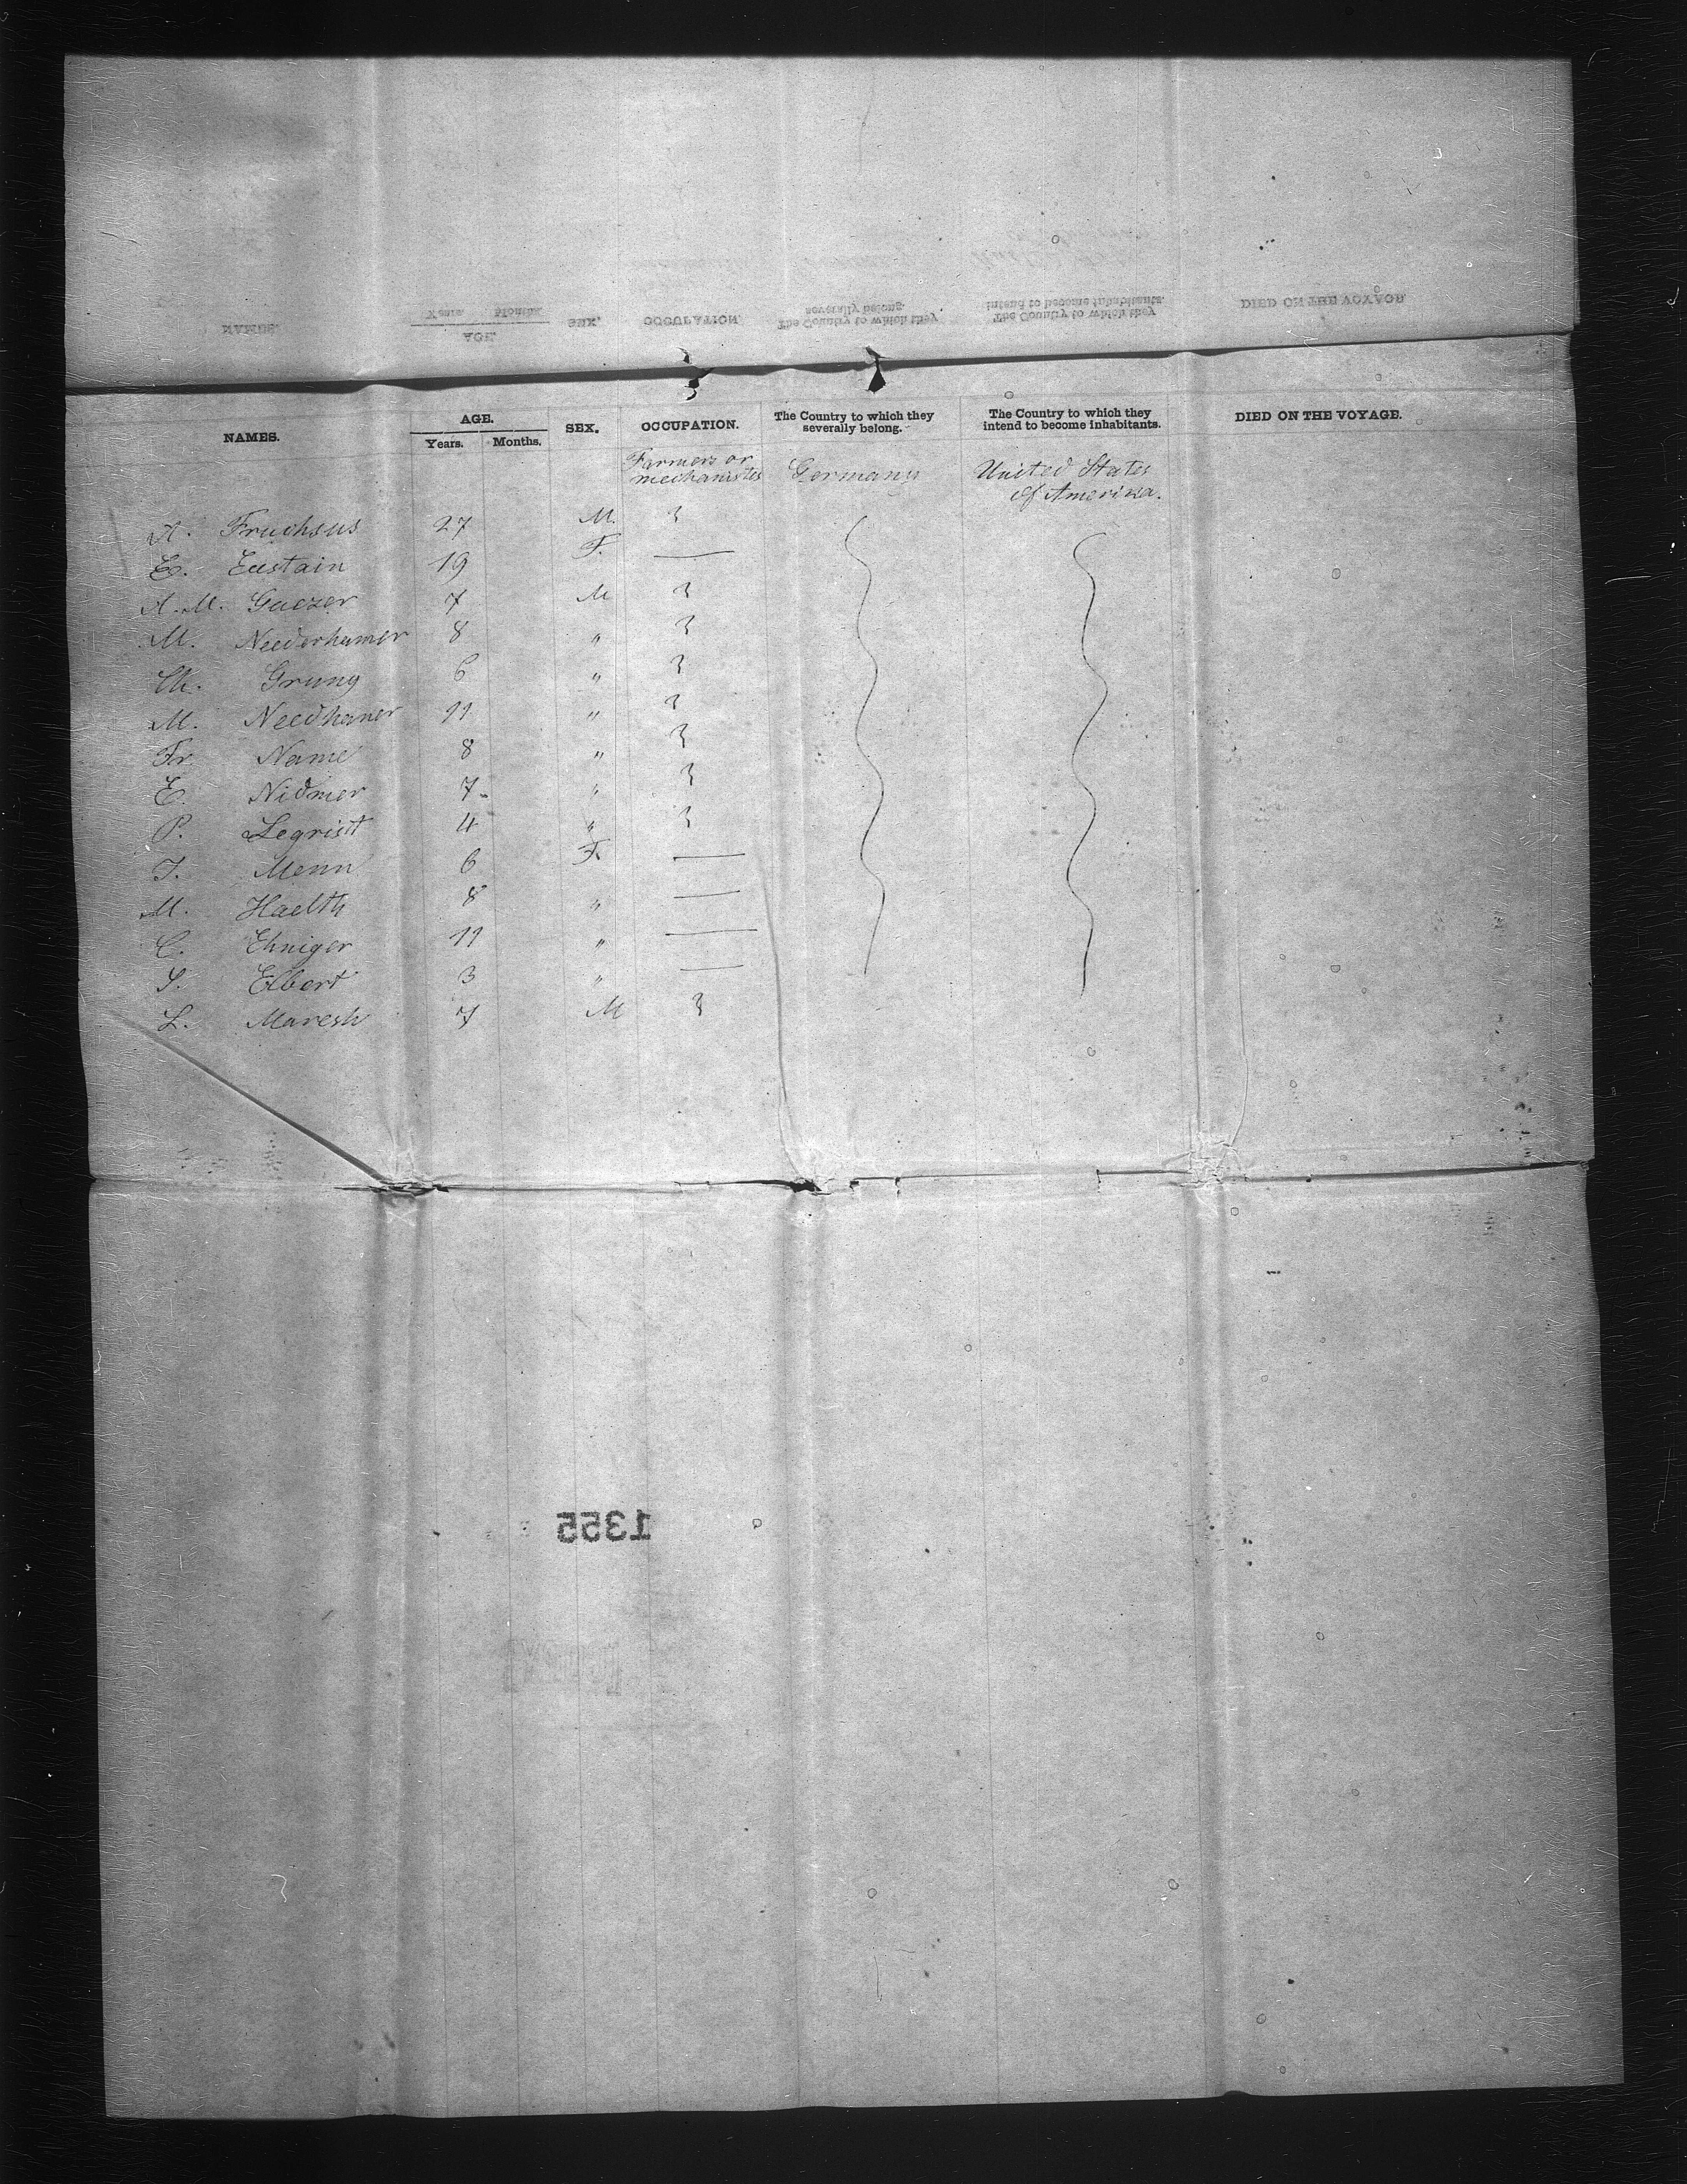 NAMES.
AGE.
Years. Months.
SEX.
OCCUPATION.
The Country to which they
severally belong.
The Country to which they
intend to become inhabitants.
DIED ON THE VOYAGE.
Farmers or
mechanistes
Germany
United States
of Amerika.
A. Fruchsus 27 M. "
E. Eustain 19 F. —
A. M. Guezer 7 M "
M. Neederhamer 8 " "
Ch. Grung 6 " "
M. Needhamer 11 " "
Fr. Name 8 " "
E. Nidmer 7 " "
P. Legrist 4 " "
J. Menn 6 F. —
M. Haelth 8 " —
C. Ehniger 11 " —
S. Elbert 3 " —
L. Maresh 7 M "
1355